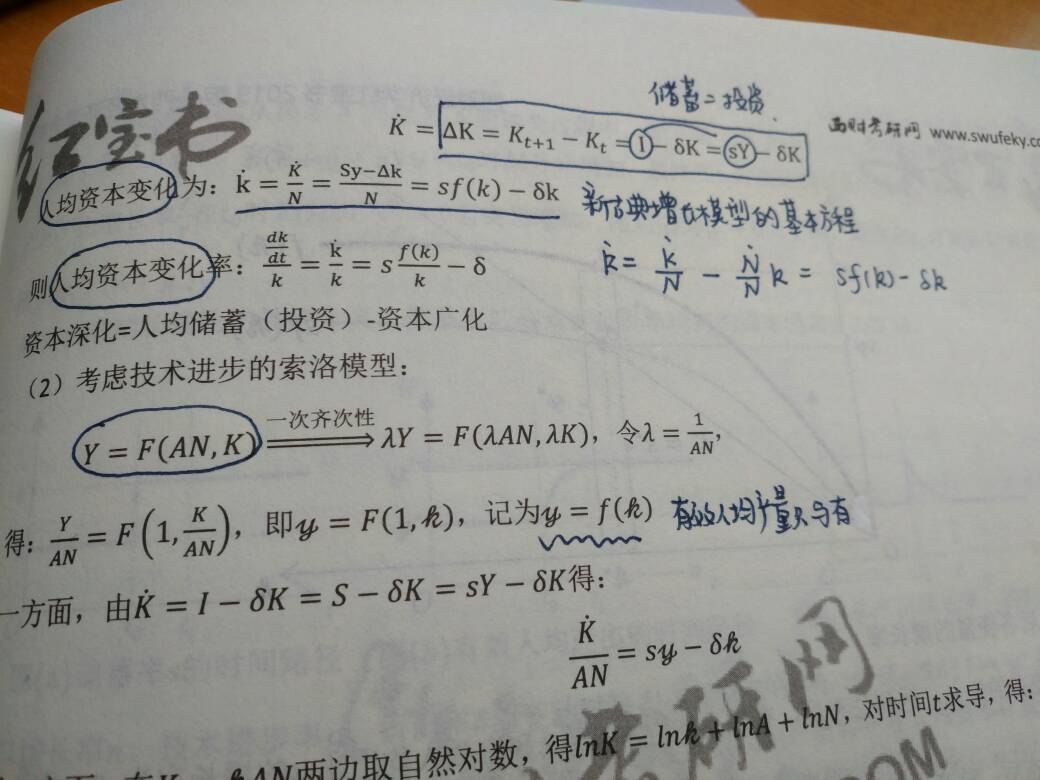 储蓄=投资.
K̇ = ΔK = K_{t+1} − K_t = I − δK = sY − δK
西财考研网 www.swufeky.co
红宝书
人均资本变化为：k̇ = K̇/N = (Sy−Δk)/N = sf(k) − δk
新古典增长模型的基本方程
则人均资本变化率：(dk/dt)/k = k̇/k = s f(k)/k − δ
k̇ = k̇/N − Ṅ/N k = sf(k) − δk
资本深化=人均储蓄（投资）-资本广化
（2）考虑技术进步的索洛模型：
Y = F(AN, K) 一次齐次性 ⟹ λY = F(λAN, λK)，令λ = 1/AN，
得：Y/AN = F(1, K/AN)，即y = F(1, k)，记为y = f(k) 有效人均产量只与有
一方面，由K̇ = I − δK = S − δK = sY − δK得：
K̇/AN = sy − δk
考研网
两边取自然对数，得lnK = lnk + lnA + lnN，对时间t求导，得：
OM